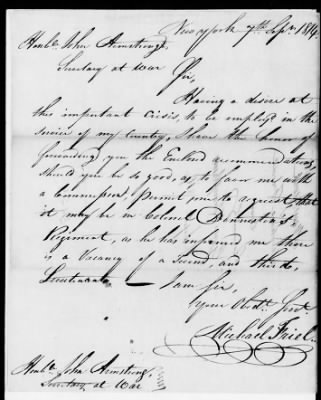 New york 7th Sepr. 1814
Honble. John Armstrong,
Secretary at War
Sir,
Having a desire at
this important Crisis, to be employd in the
Service of my Country, I have the honor of
forwarding you the Enclosd recommendations,
should you be so good, as to favor me with
a Commission, permit me to request, that
it may be in Colonel Dennistin's
Regiment, as he has informed me there
is a Vacancy of a Second, and third,
Lieutenants — I am Sir,
Your Obdt. Servt.
Michael Friel
Honble. John Armstrong,
Secretary at War